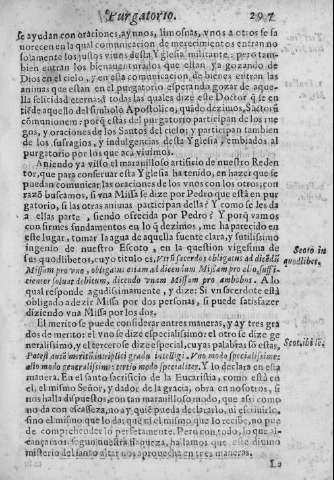 Purgatorio. 297
se ayudan con oraciones, ayunos, limosnas, vnos a otros se fa
uorecen en la qual comunicacion de merecimientos entran no
solamente los justos viuos desta Yglesia militante: pero tam-
bien entran los bienauenturados que estan ya gozando de
Dios en el cielo, y en esta comunicacion de bienes entran las
animas que estan en el purgatorio esperando gozar de aque-
lla felicidad eterna: a todas las quales dize este Doctor q̃ se en
tiẽde aquello del simbolo Apostolico, quãdo dezimos, Sãctorũ
comunionem: porq̃ estas del purgatorio participan de los rue
gos, y oraciones de los Santos del cielo; y participan tambien
de los sufragios, y indulgencias desta Yglesia, embiados al
purgatorio por los que aca viuimos.
Auiendo ya visto el marauilloso artificio de nuestro Reden
tor, que para conseruar esta Yglesia ha tenido, en hazer que se
puedan comunicar las oraciones de los vnos con los otros; con
razõ buscamos, si vna Missa se dize por Pedro que està en pur
gatorio, si las otras animas participan della? Y como se les da
a ellas parte, siendo ofrecida por Pedro? Y porq̃ vamos
con firmes fundamentos en lo q̃ dezimos, me ha parecido en
este lugar, tomar la agua de aquella fuente clara, y sutilissimo
ingenio de nuestro Escoto, en la question vigesima de
sus quodlibetos, cuyo titulo es, Vtrũ sacerdos obligatus ad dicẽdũ
Missam pro vno, obligatus etiam ad dicendum Missam pro alio, suffi-
cienter soluat debitum, dicendo vnam Missam pro ambobus. A lo
qual responde agudissimamente, y dize: Si vn sacerdote està
obligado a dezir Missa por dos personas, si puede satisfazer
diziendo vna Missa por los dos.
El merito se puede considerar en tres maneras, y ay tres gra
dos de merito: el vno se dize especialissimo: el otro se dize ge
neralissimo, y el tercero se dize especial, cuyas palabras sõ estas,
Potest autẽ meritũ in triplici gradu intelligi. Vno modo specialissime:
alio modo generalissime: tertio modo specialiter. Y lo declara en esta
manera. En el santo sacrificio de la Eucaristia, como està en
el, el mismo Señor, y dador de la gracia, obra en nosotros, si
nos halla dispuestos, con tan marauilloso modo, que assi como
no da con escasseza, no ay quiẽ pueda declararlo, ni escriuirlo,
sino el mismo que lo da; que si el mismo que lo recibe, no pue
de comprehenderlo perfetamente. Pero con todo, lo que al-
cançamos segun nuestra flaqueza, hallamos que este diuino
misterio del santo altar nos aprouecha en tres maneras.
La
Scoto in
quodlibet.
Scot. ibidẽ.